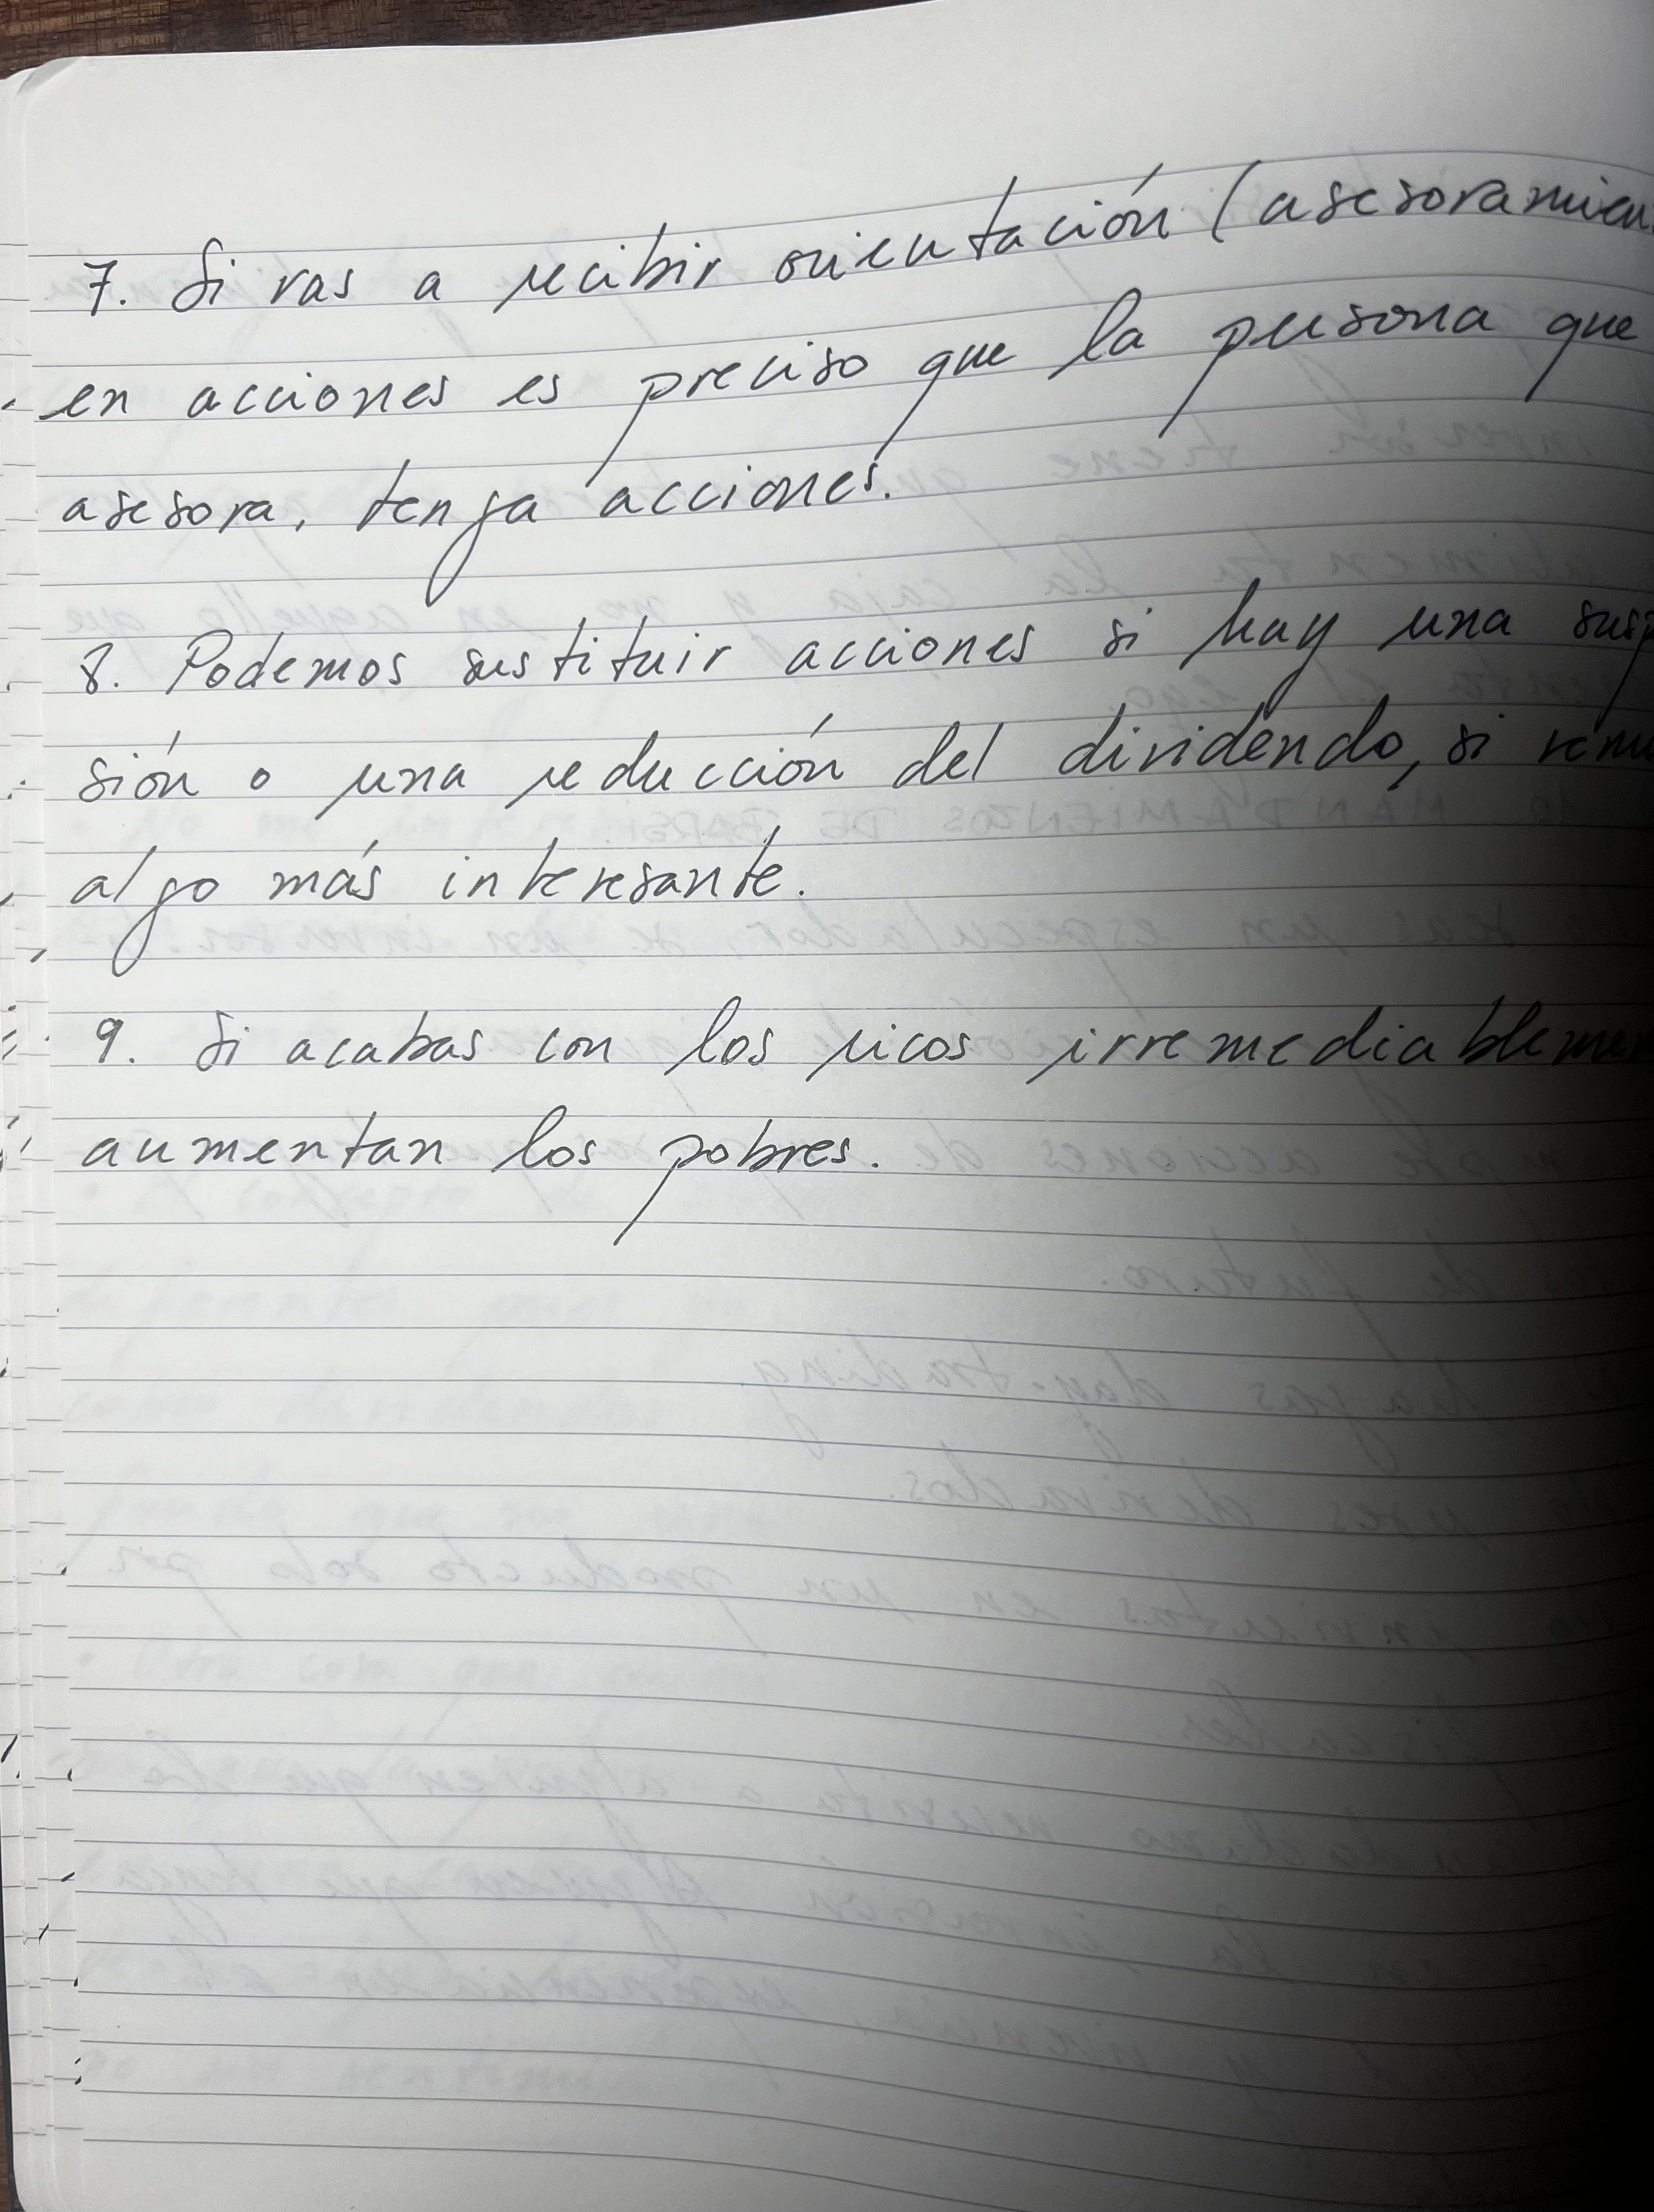 7. Si vas a recibir orientación (asesoramien
en acciones es preciso que la persona que
asesora, tenga acciones.
8. Podemos sustituir acciones si hay una susp
sión o una reducción del dividendo, si vemo
algo más interesante.
9. Si acabas con los ricos irremediablemen
aumentan los pobres.